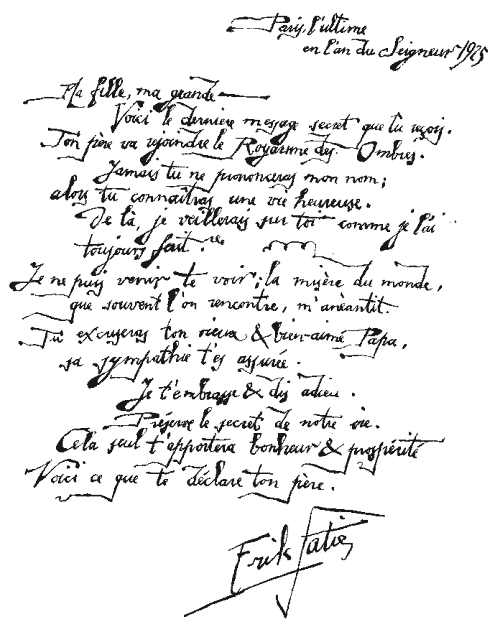 Paris, l'ultime
en l'an du Seigneur 1925
Ma fille, ma grande
Voici le dernière message secret que tu reçois.
Ton père va rejoindre le Royaume des Ombres.
Jamais tu ne prononceras mon nom;
alors tu connaîtras une vie heureuse.
De là, je veillerais sur toi comme je l'ai
toujours fait.
Je ne puis venir te voir; la misère du monde,
que souvent l'on rencontre, m'anéantit.
Tu excuseras ton vieux & bien-aimé Papa,
sa sympathie t'es assurée.
Je t'embrasse & dis adieu.
Préserve le secret de notre vie.
Celà seul t'apportera bonheur & prospérité
Voici ce que te déclare ton père.
Erik Satie